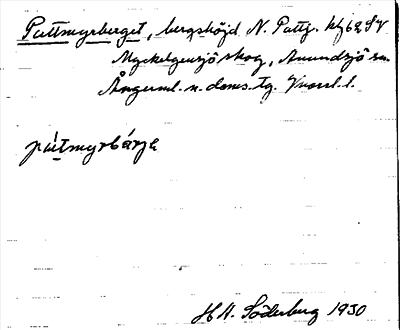 Pattmyrberget, bergshöjd N. Pattj. kbl 62 SV
Myckelgensjö skog, Anundsjö sn.
Ångerml. n. doms.tg. Vnorrl. l.
påtmyrbärje
H A. Söderberg 1930